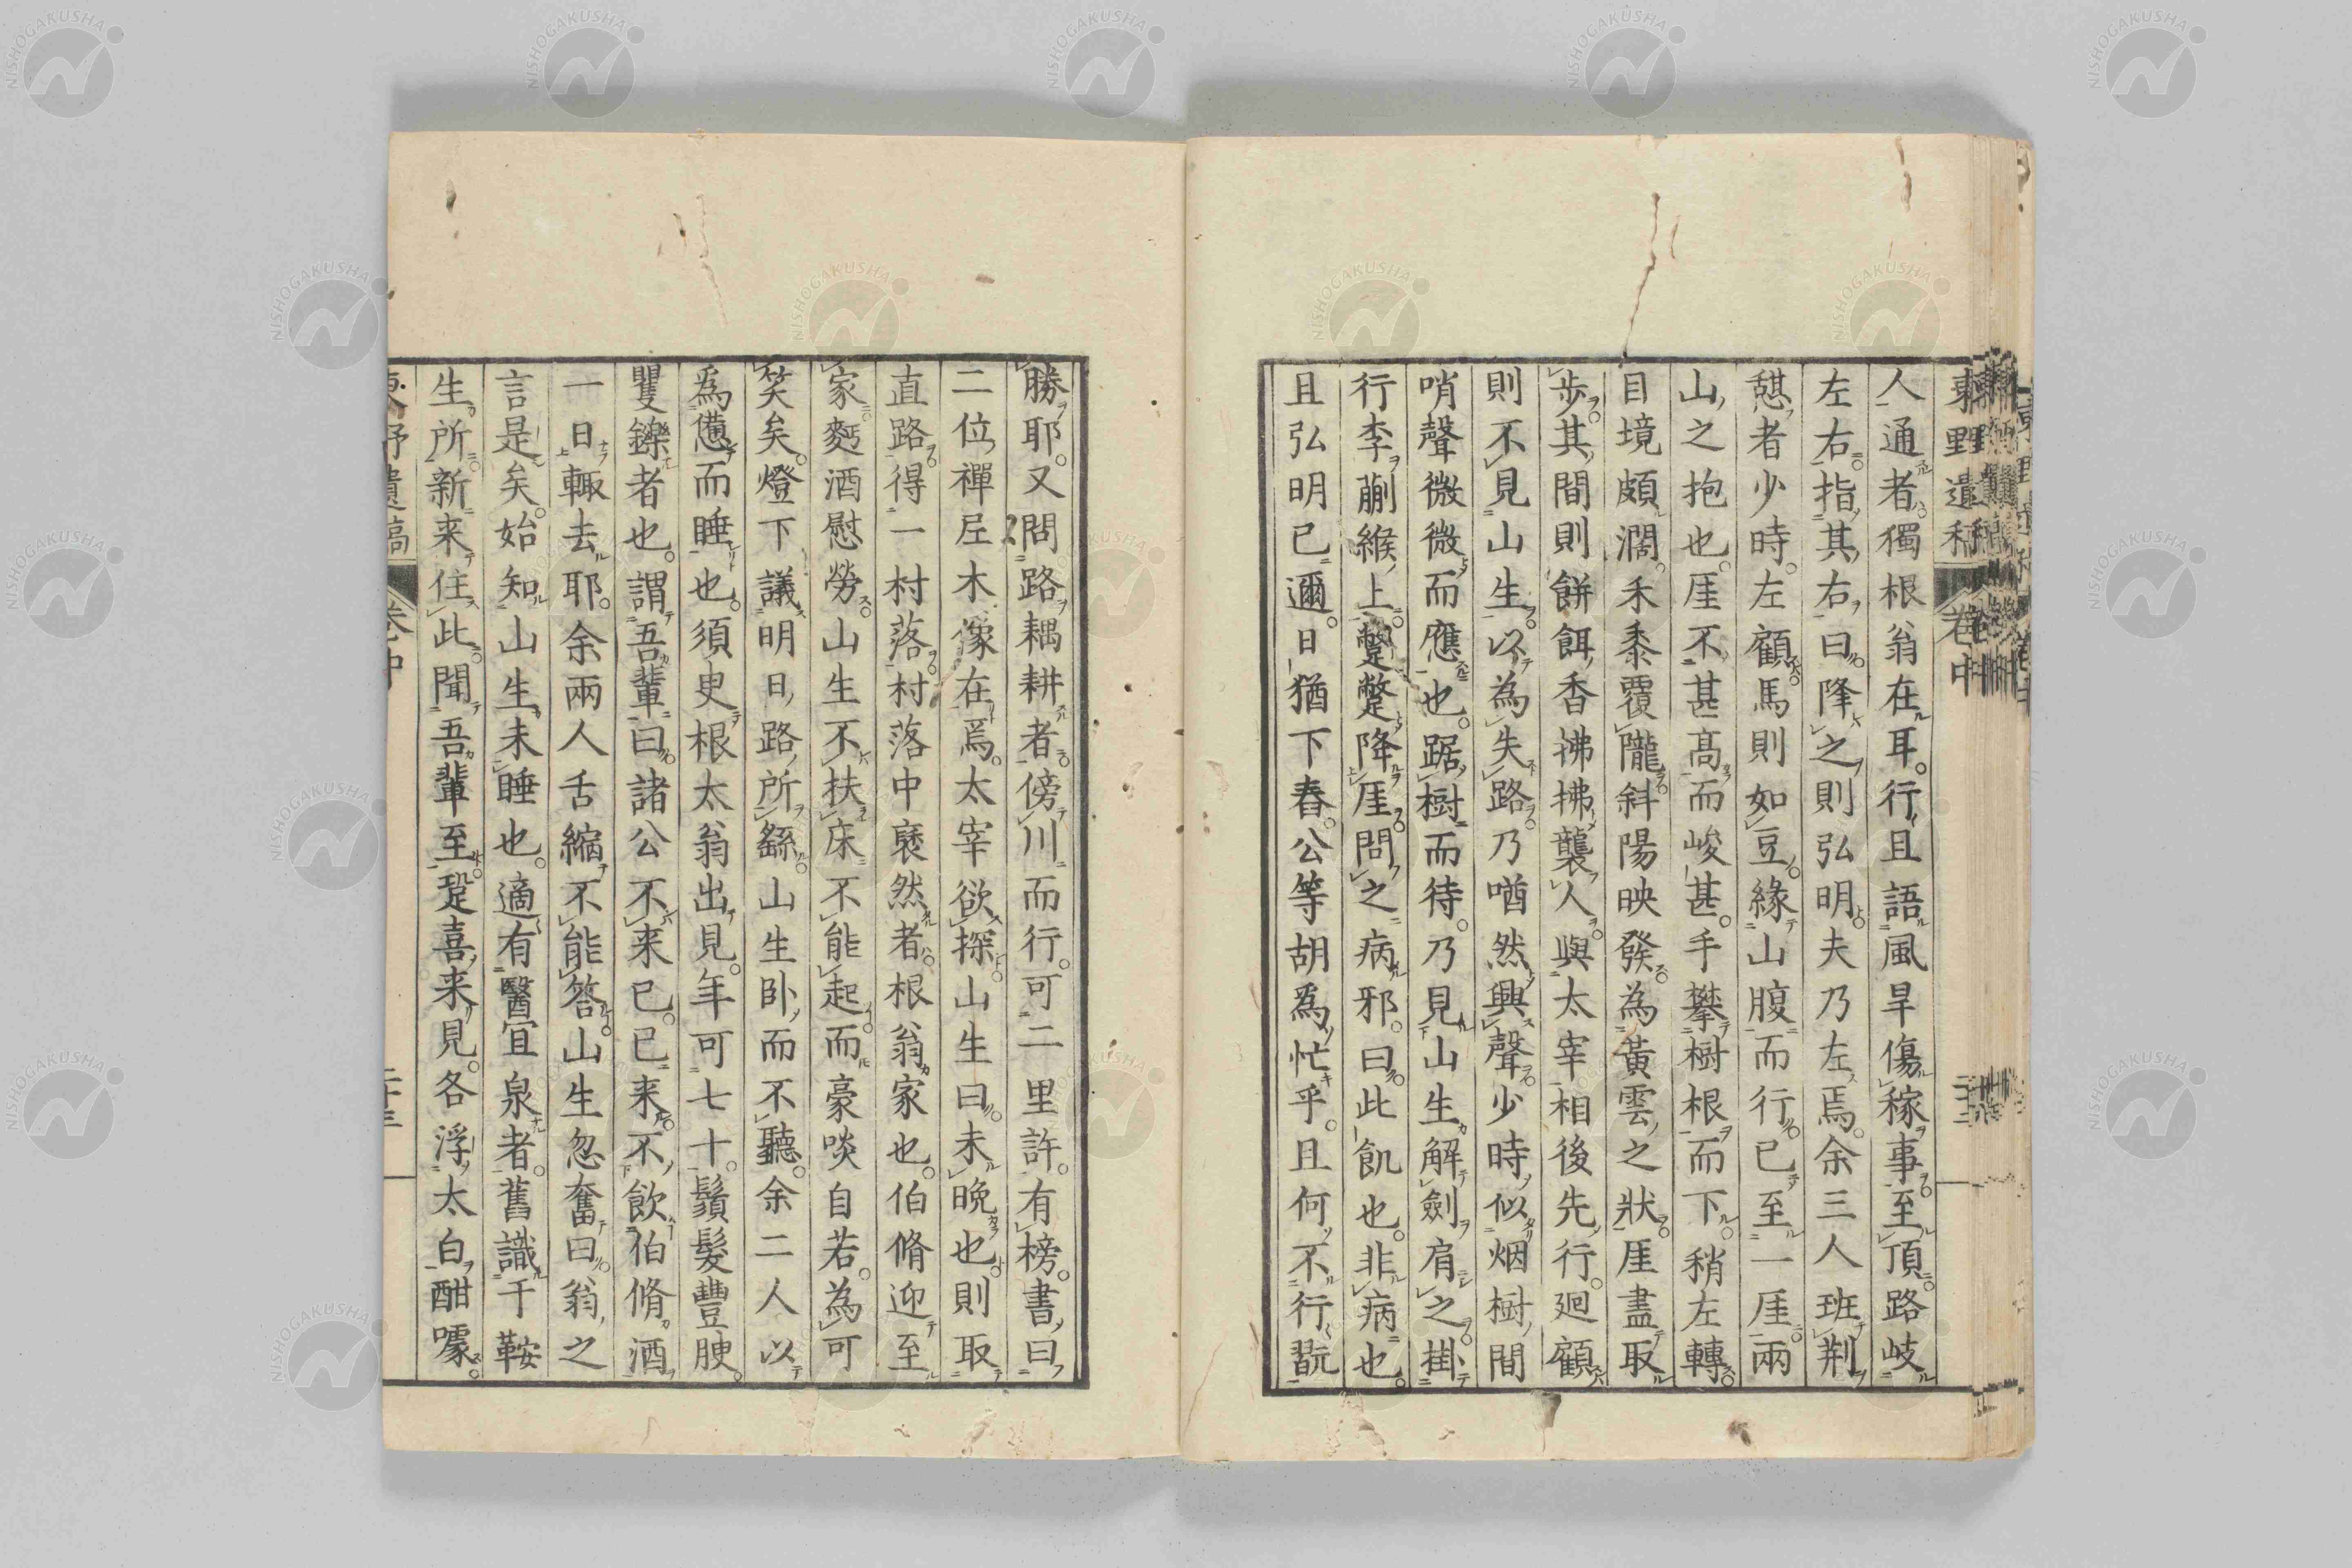 東野遺稿 卷中
人通者獨根翁在耳。行且語風旱傷稼事至頂。路岐
左右。指其右曰。降之則弘明。夫乃左焉。余三人班荆
憇者少時。左顧馬則如豆。緣山腹而行。已至一厓。兩
山之抱也。厓不甚髙而峻甚。手攀樹根而下。稍左轉。
目境頗濶。禾黍覆隴。斜陽映發。為黃雲之狀。厓盡取
步。其間則餅餌香拂拂襲人。與太宰相後先行。廻顧
則不見山生。以為失路。乃噵然興聲。少時似烟樹間
哨聲微微而應也。踞樹而待。乃見山生解劍肩之。掛
行李蒯緱上。蹩蹩降厓。問之病邪。曰此飢也。非病也。
且弘明已邇。日猶下舂。公等胡為忙乎。且何不行翫
勝耶。又問路耦耕者。傍川而行。可二里許。有榜。書曰
二位禪尼木像在焉。太宰欲探。山生曰。未晚也。則取
直路。得一村落。村落中褎然者。根翁家也。伯脩迎至
家。麪酒慰勞。山生不扶床不能起。而豪啖自若。為可
笑矣。燈下議明日路所繇。山生卧而不聽。余二人以
為憊而睡也。須臾根太翁出見。年可七十。鬚髮豐腴。
矍鑠者也。謂吾輩曰。諸公不来已。已来。不飲伯脩酒
一日輙去耶。余兩人舌縮不能答。山生忽奮曰。翁之
言是矣。始知山生未睡也。適有醫宜泉者。舊識于鞍
生。所新来住此。聞吾輩至。跫喜来見。各浮太白酣噱。
東野遺稿 卷中